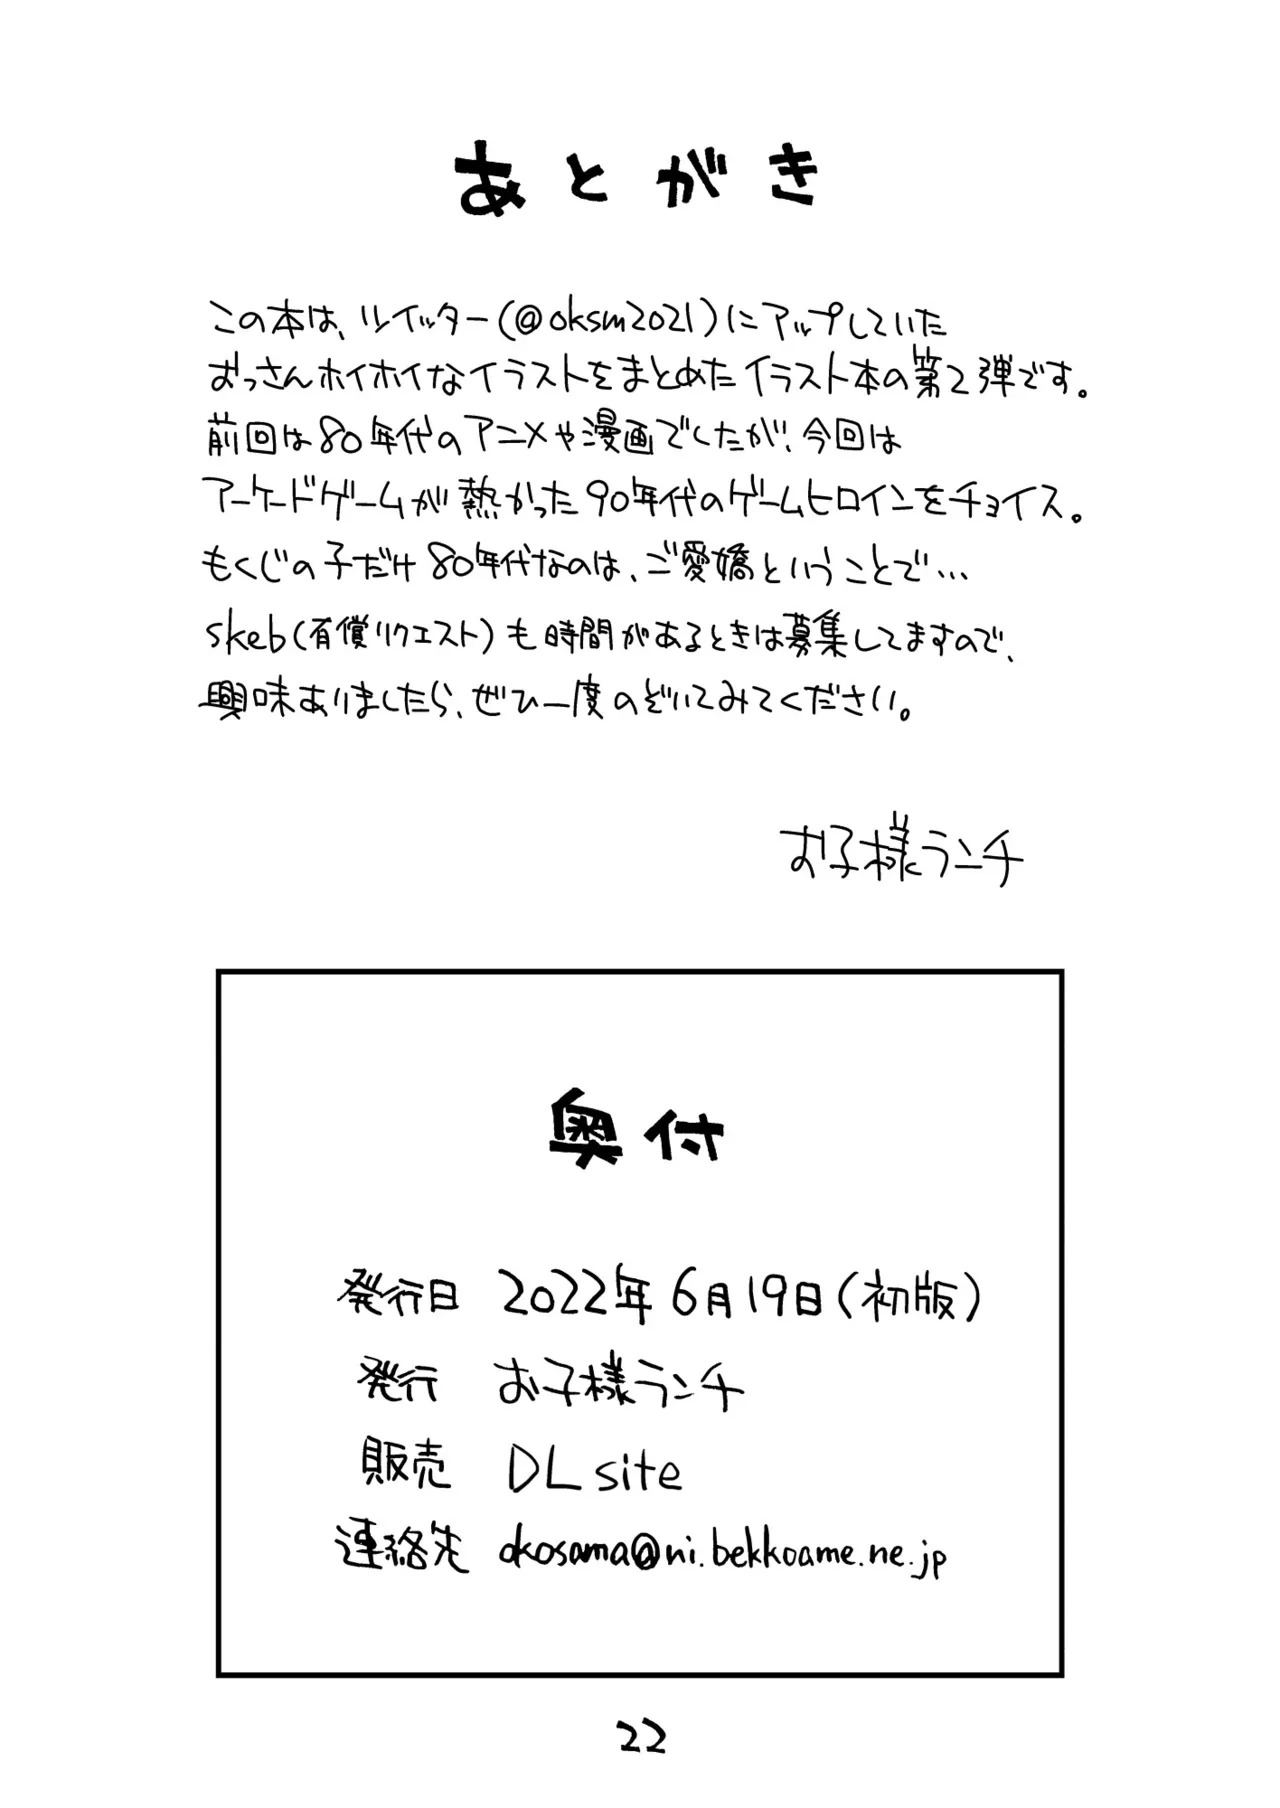 あとがき
この本は、ツイッター(@oksm2021)にアップしていた
おっさんホイホイなイラストをまとめたイラスト本の第2弾です。
前回は80年代のアニメや漫画でしたが、今回は
アーケードゲームが熱かった90年代のゲームヒロインをチョイス。
もくじの子だけ80年代なのは、ご愛嬌ということで…
skeb(有償リクエスト)も時間があるときは募集してますので、
興味ありましたら、ぜひ一度のぞいてみてください。
お子様ランチ
奥付
発行日 2022年6月19日(初版)
発行 お子様ランチ
販売 DLsite
連絡先 okosama@ni.bekkoame.ne.jp
22